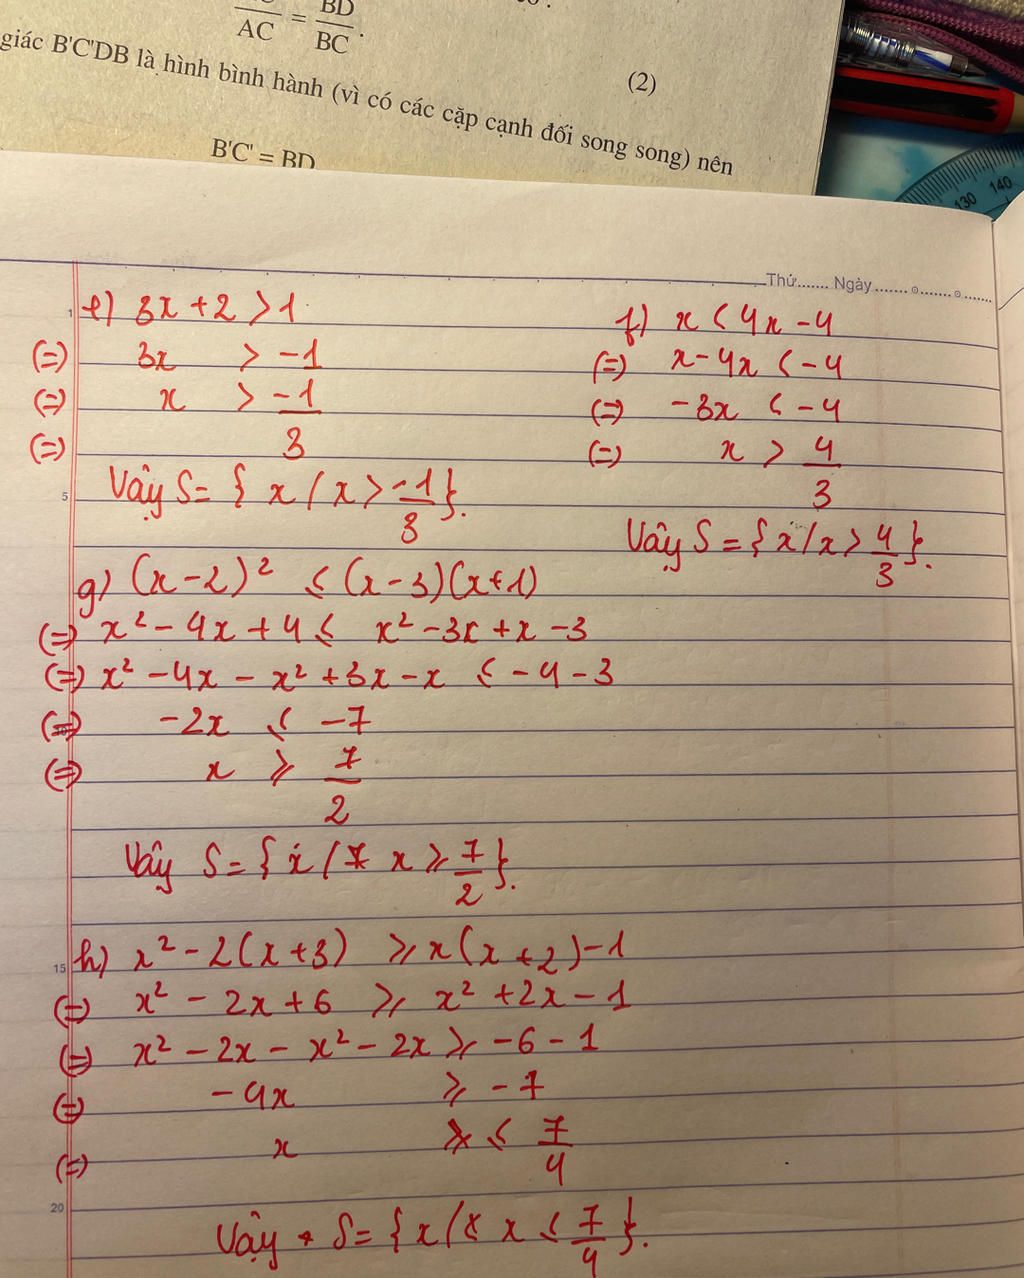 AC = BD/BC.
giác B'C'DB là hình bình hành (vì có các cặp cạnh đối song song) nên
(2)
B'C' = BD
Thứ....... Ngày ....... o ....... o .......
1
e) 3x + 2 > 1
(=) 3x > -1
(=) x > -1/3
(=)
5
Vậy S = { x / x > -1/3 }.
f) x < 4x - 4
(=) x - 4x < -4
(=) -3x < -4
(=) x > 4/3
Vậy S = { x / x > 4/3 }.
g) (x - 2)² ≤ (x - 3)(x + 1)
(=) x² - 4x + 4 ≤ x² - 3x + x - 3
(=) x² - 4x - x² + 3x - x ≤ -4 - 3
(=) -2x ≤ -7
(=) x ≥ 7/2
Vậy S = { x / x ≥ 7/2 }.
15
h) x² - 2(x + 3) ≥ x(x + 2) - 1
(=) x² - 2x + 6 ≥ x² + 2x - 1
(=) x² - 2x - x² - 2x ≥ -6 - 1
(=) -4x ≥ -7
(=) x ≤ 7/4
20
Vậy S = { x / x ≤ 7/4 }.
130 140